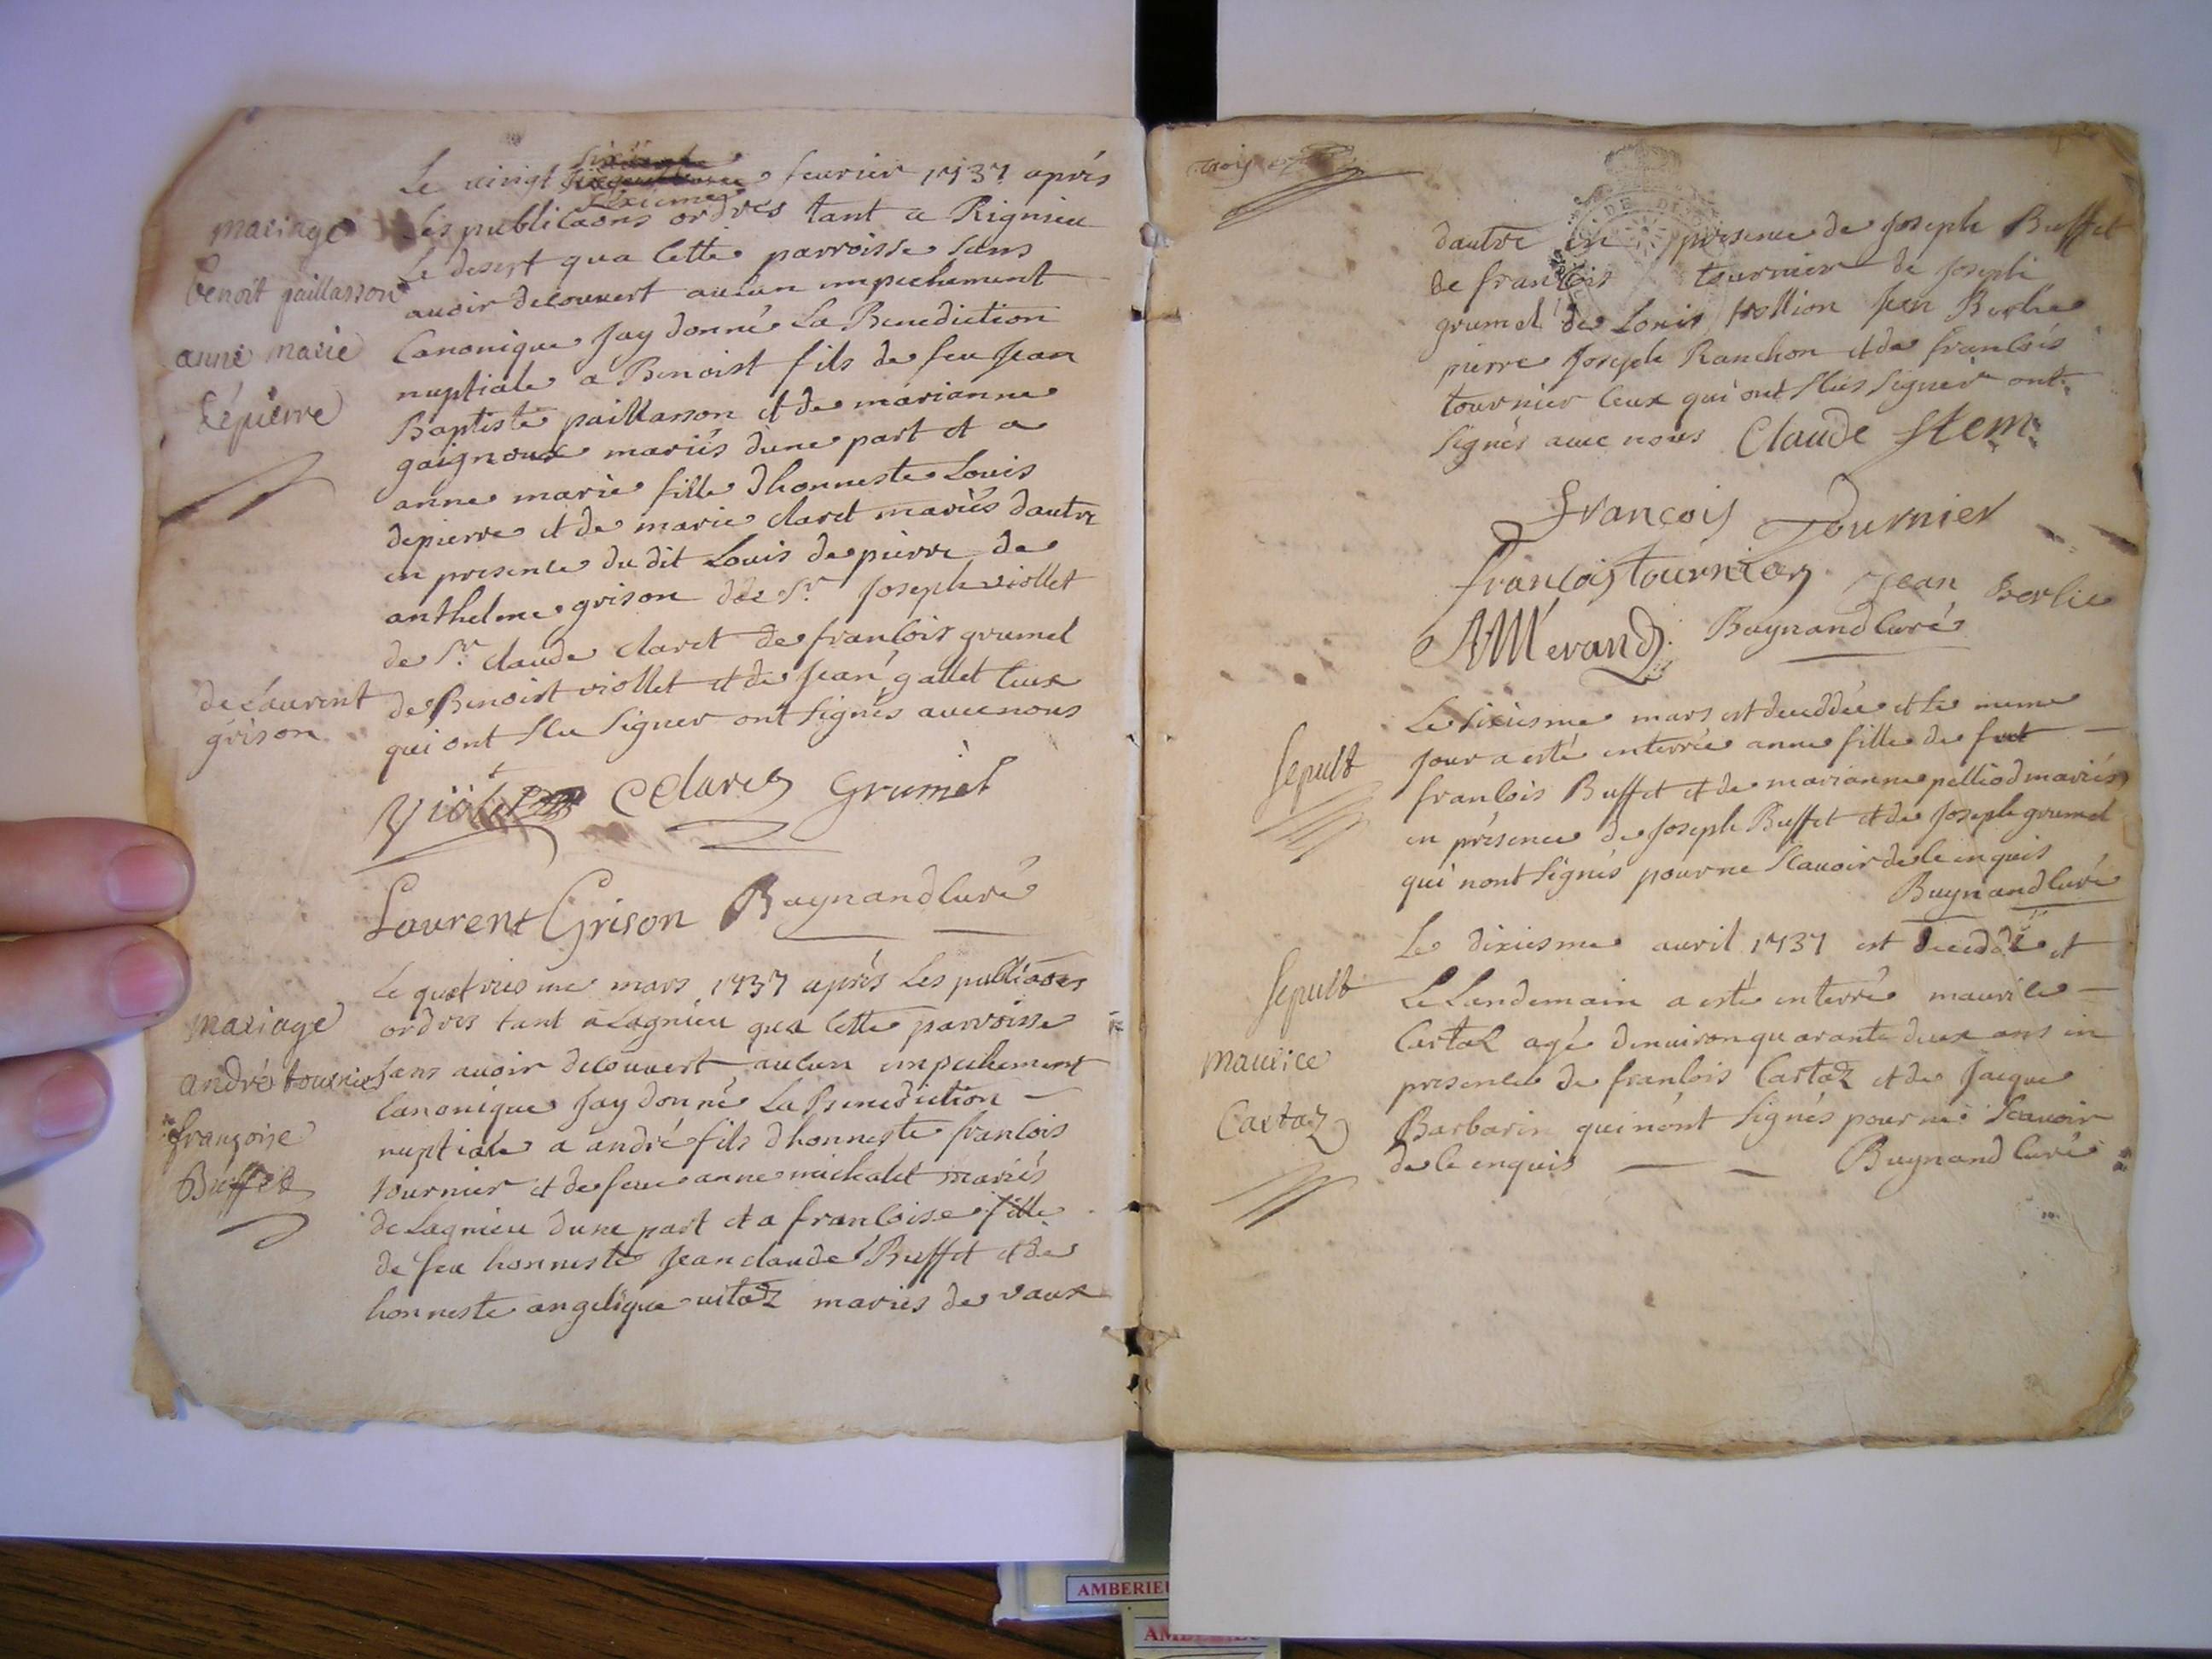 mariage
benoit paillasson
anne marie
depierre
Le vingt sixieme feurier 1737 après
les publicaons ordres tant a Rignieu
Le desert qua Cette parroisse sans
auoir decouuert aucun impechement
Canonique Jay donné La Benediction
nuptiale a Benoist fils de feu Jean
Baptiste paillasson et de marianne
gaignoux mariés dune part et a
anne marie fille dhonneste Louis
depierre et de marie claret mariés dautre
en presence du dit Louis depierre de
anthelme grison de Sr Joseph viollet
de Sr claude claret de francois grumel
de Laurent
grison
de Benoist viollet et de Jean gallet Ceux
qui ont Sceu Signer ont Signés auec nous
Viölet Claret Grumel
Laurent Grison Buynand Curé
mariage
andré tournier
françoise
Buffet
Le quatriesme mars 1737 après Les publicaons
ordres tant a Lagnieu qua Cette parroisse
sans auoir decouuert aucun impechement
Canonique Jay donné La Benediction
nuptiale a andré fils dhonneste francois
tournier et de feue anne michalet mariés
de Lagnieu dune part et a francoise fille
de feu honneste Jean claude Buffet et de
honneste angelique vitoz mariés de vaux
trois
dautre en presence de Joseph Buffet
de francois tournier de Joseph
grumel de Louis Jean Berlie
pierre Joseph Ranchon et de francois
tournier Ceux qui ont Sceus Signer ont
Signés auec nous Claude Stem
François Tournier
francois tournier Jean Berlie
AMerand Buynand Curé
Sepult
Le sixiesme mars est decedée et Le meme
Jour a esté enterrée anne fille de
francois Buffet et de marianne pelliod mariés
en présence de Joseph Buffet et de Joseph grumel
qui nont Signés pour ne Scauoir de Ce enquis
Buynand Curé
Sepult
Maurice
Cartaz
Le dixiesme auril 1737 est decedé et
Le Landemain a esté enterré maurice
Cartaz agé denuiron quarante deux ans en
presence de francois Cartaz et de Jacque
Barbarin qui nont Signés pour ne Scauoir
de Ce enquis Buynand Curé
AMBERIEU